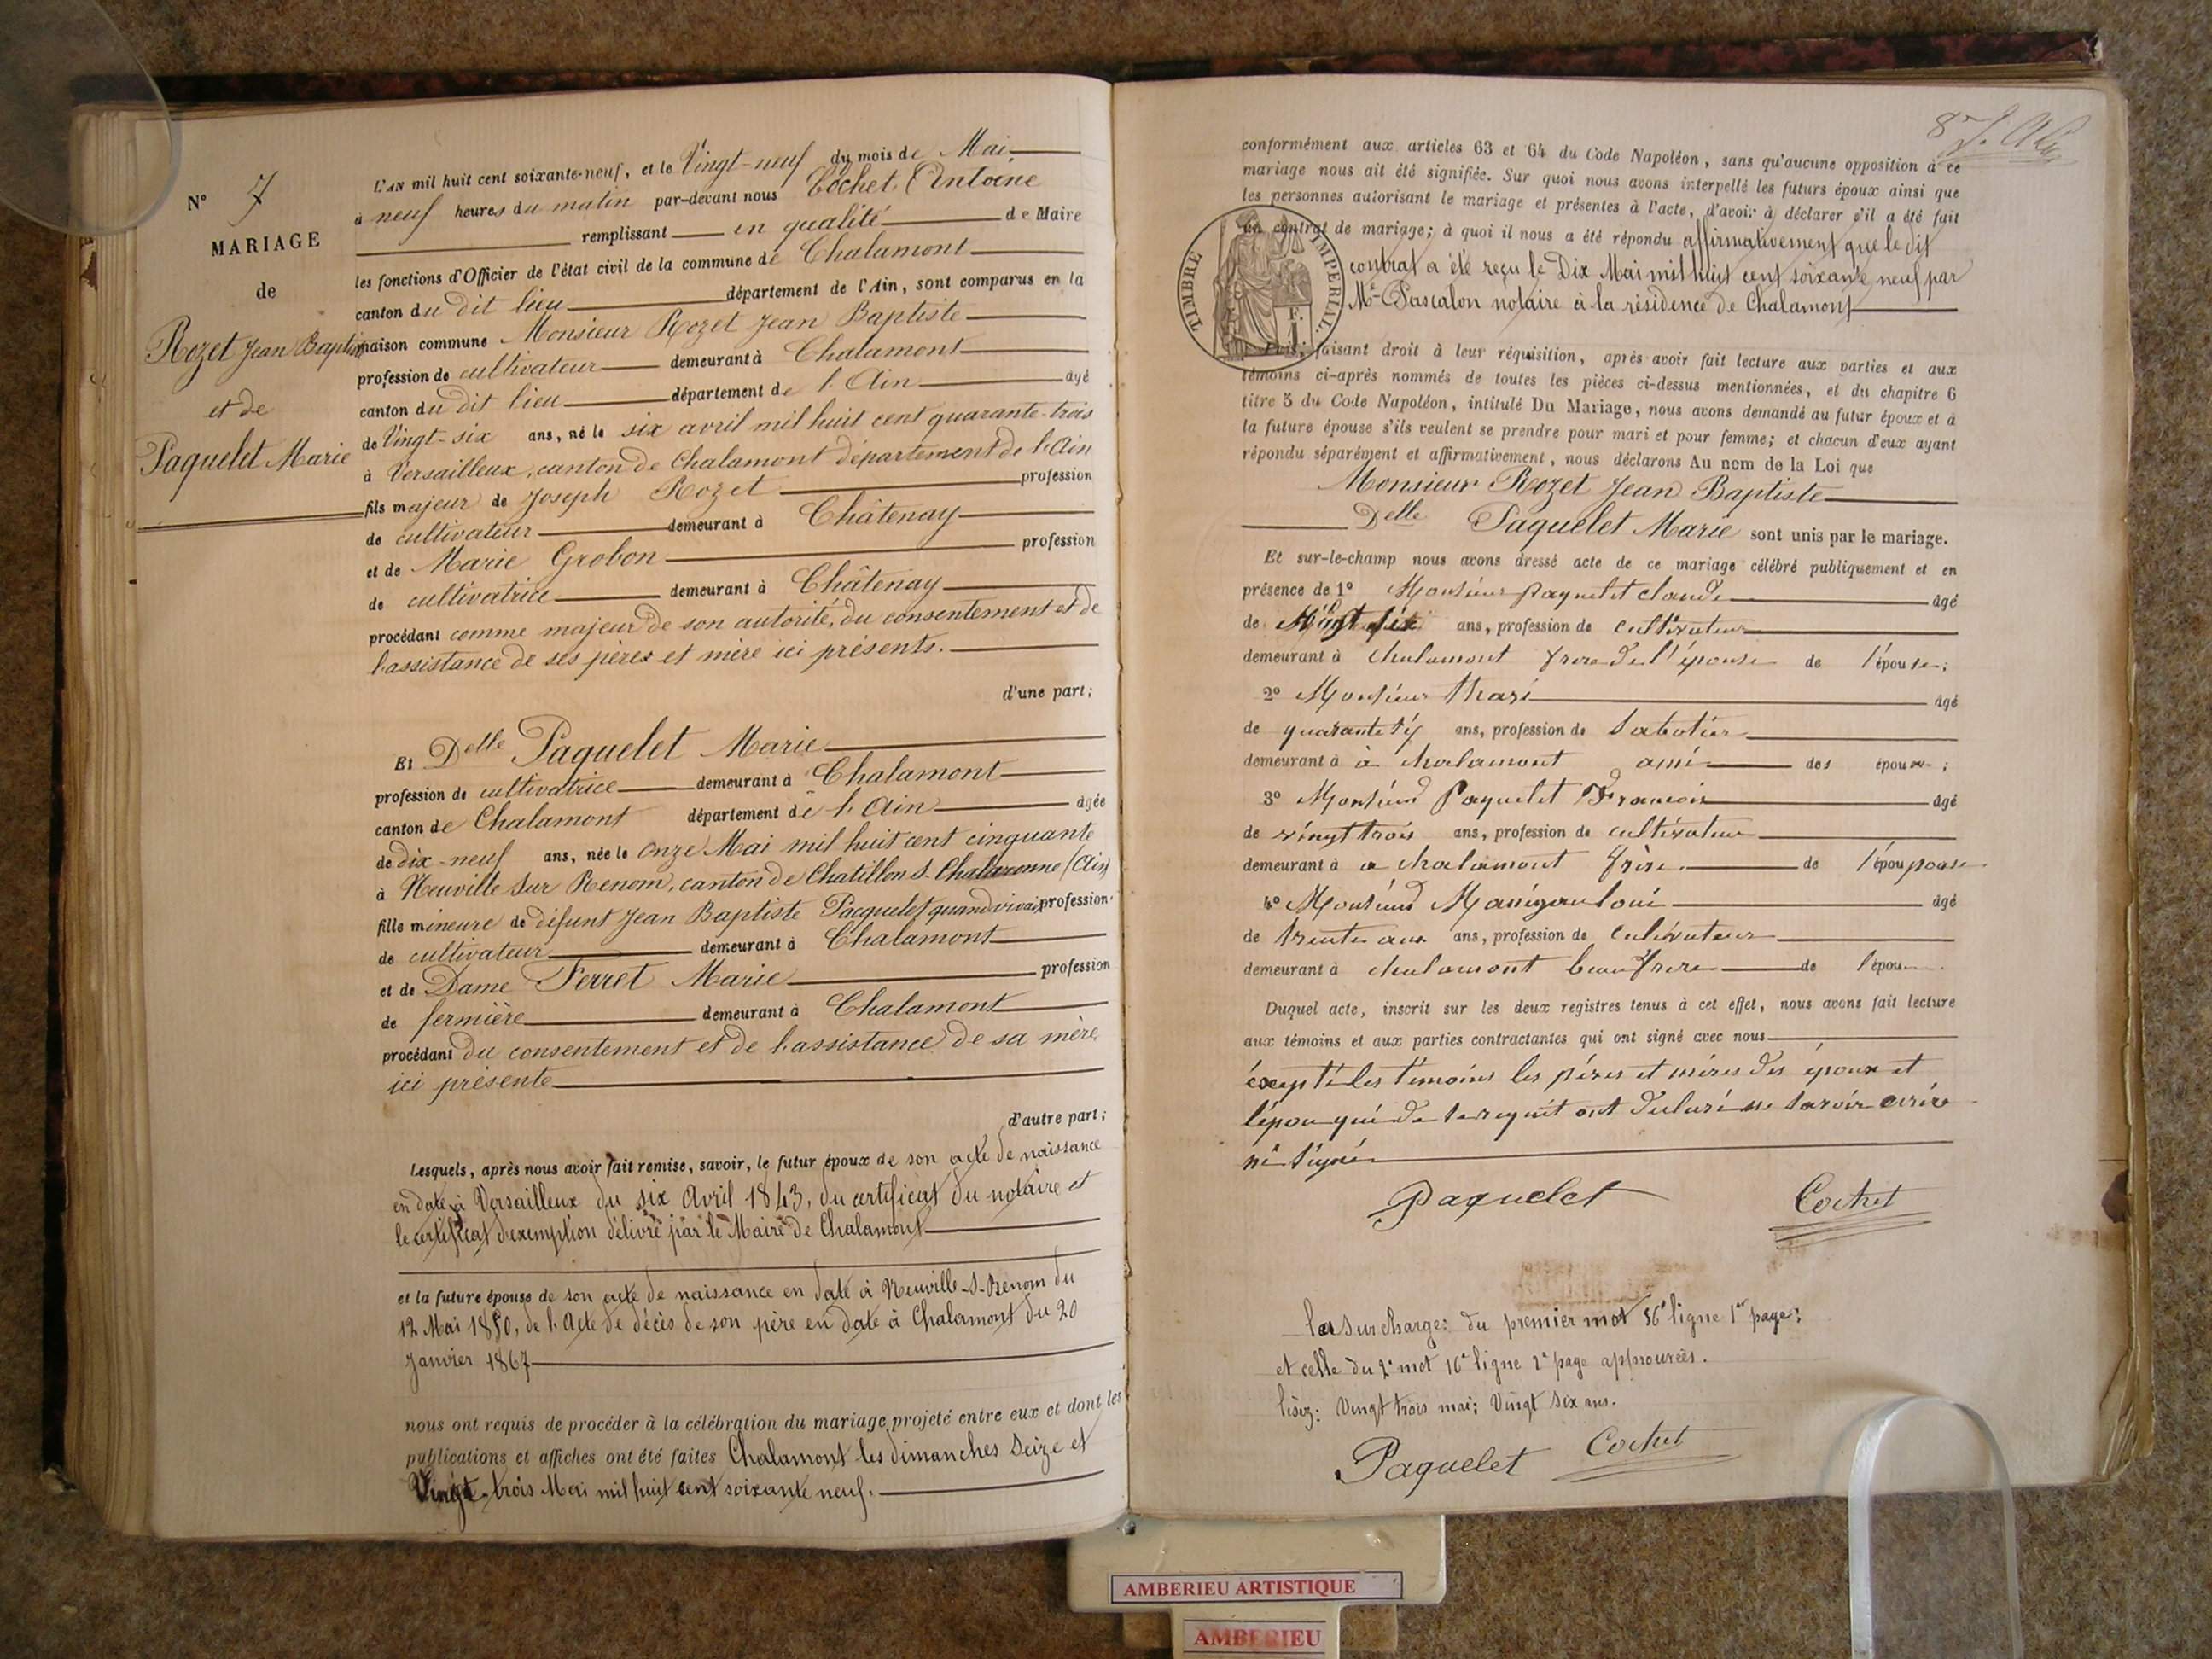 N° 7
MARIAGE
de
Rozet Jean Baptiste
et de
Paquelet Marie
L'AN mil huit cent soixante-neuf, et le Vingt-neuf du mois de Mai
à neuf heures du matin par-devant nous Cochet Antoine
remplissant en qualité de Maire
les fonctions d'Officier de l'état civil de la commune de Chalamont
canton du dit lieu département de l'Ain, sont comparus en la
maison commune Monsieur Rozet Jean Baptiste
profession de cultivateur demeurant à Chalamont
canton du dit lieu département de l'Ain âgé
de Vingt-six ans, né le six avril mil huit cent quarante-trois
à Versailleux, canton de Chalamont département de l'Ain
fils majeur de Joseph Rozet profession
de cultivateur demeurant à Châtenay
et de Marie Grobon profession
de cultivatrice demeurant à Châtenay
procédant comme majeur de son autorité, du consentement et de
l'assistance de ses pères et mère ici présents.
d'une part;
Et Delle Paquelet Marie
profession de cultivatrice demeurant à Chalamont
canton de Chalamont département de l'Ain âgée
de dix-neuf ans, née le onze Mai mil huit cent cinquante
à Neuville sur Renom, canton de Chatillon s. Chalaronne (Ain)
fille mineure de défunt Jean Baptiste Pacquelet quand vivait profession
de cultivateur demeurant à Chalamont
et de Dame Ferret Marie profession
de fermière demeurant à Chalamont
procédant du consentement et de l'assistance de sa mère
ici présente
d'autre part;
Lesquels, après nous avoir fait remise, savoir, le futur époux de son acte de naissance
en date à Versailleux du six Avril 1843, du certificat du notaire et
le certificat d'exemption délivré par le Maire de Chalamont
et la future épouse de son acte de naissance en date à Neuville-S-Renom du
12 Mai 1850, de l'Acte de décès de son père en date à Chalamont du 20
Janvier 1867
nous ont requis de procéder à la célébration du mariage projeté entre eux et dont les
publications et affiches ont été faites Chalamont les dimanches Seize et
Vingt-trois Mai mil huit cent soixante neuf.
conformément aux articles 63 et 64 du Code Napoléon, sans qu'aucune opposition à ce
mariage nous ait été signifiée. Sur quoi nous avons interpellé les futurs époux ainsi que
les personnes autorisant le mariage et présentes à l'acte, d'avoir à déclarer s'il a été fait
un contrat de mariage; à quoi il nous a été répondu affirmativement que le dit
contrat a été reçu le Dix Mai mil huit cent soixante neuf par
Me Pascalon notaire à la résidence de Chalamont
TIMBRE IMPERIAL
Puis, faisant droit à leur réquisition, après avoir fait lecture aux parties et aux
témoins ci-après nommés de toutes les pièces ci-dessus mentionnées, et du chapitre 6
titre 5 du Code Napoléon, intitulé Du Mariage, nous avons demandé au futur époux et à
la future épouse s'ils veulent se prendre pour mari et pour femme; et chacun d'eux ayant
répondu séparément et affirmativement, nous déclarons Au nom de la Loi que
Monsieur Rozet Jean Baptiste
Delle Paquelet Marie sont unis par le mariage.
Et sur-le-champ nous avons dressé acte de ce mariage célébré publiquement et en
présence de 1° Monsieur Paquelet claude âgé
de Vingt six ans, profession de cultivateur
demeurant à chalamont frere de l'épouse de l'épouse;
2° Monsieur âgé
de quarante ans, profession de sabotier
demeurant à à chalamont ami des époux;
3° Monsieur Paquelet Francois âgé
de vingt trois ans, profession de cultivateur
demeurant à a chalamont frère de l'épou pouse
4° Monsieur âgé
de trente ans, profession de cultivateur
demeurant à chalamont beau frere de l'épou
Duquel acte, inscrit sur les deux registres tenus à cet effet, nous avons fait lecture
aux témoins et aux parties contractantes qui ont signé avec nous
éxcepté les témoins les pères et mères des époux et
l'épou qui de ce requit ont déclaré ne savoir écrire
ni signé
Paquelet Cochet
les surcharges: du premier mot 36e ligne 1re page;
et celle du 2e mot 16e ligne 2e page approuvées.
lisez: Vingt trois mai; Vingt six ans.
Paquelet Cochet
AMBERIEU ARTISTIQUE
AMBERIEU